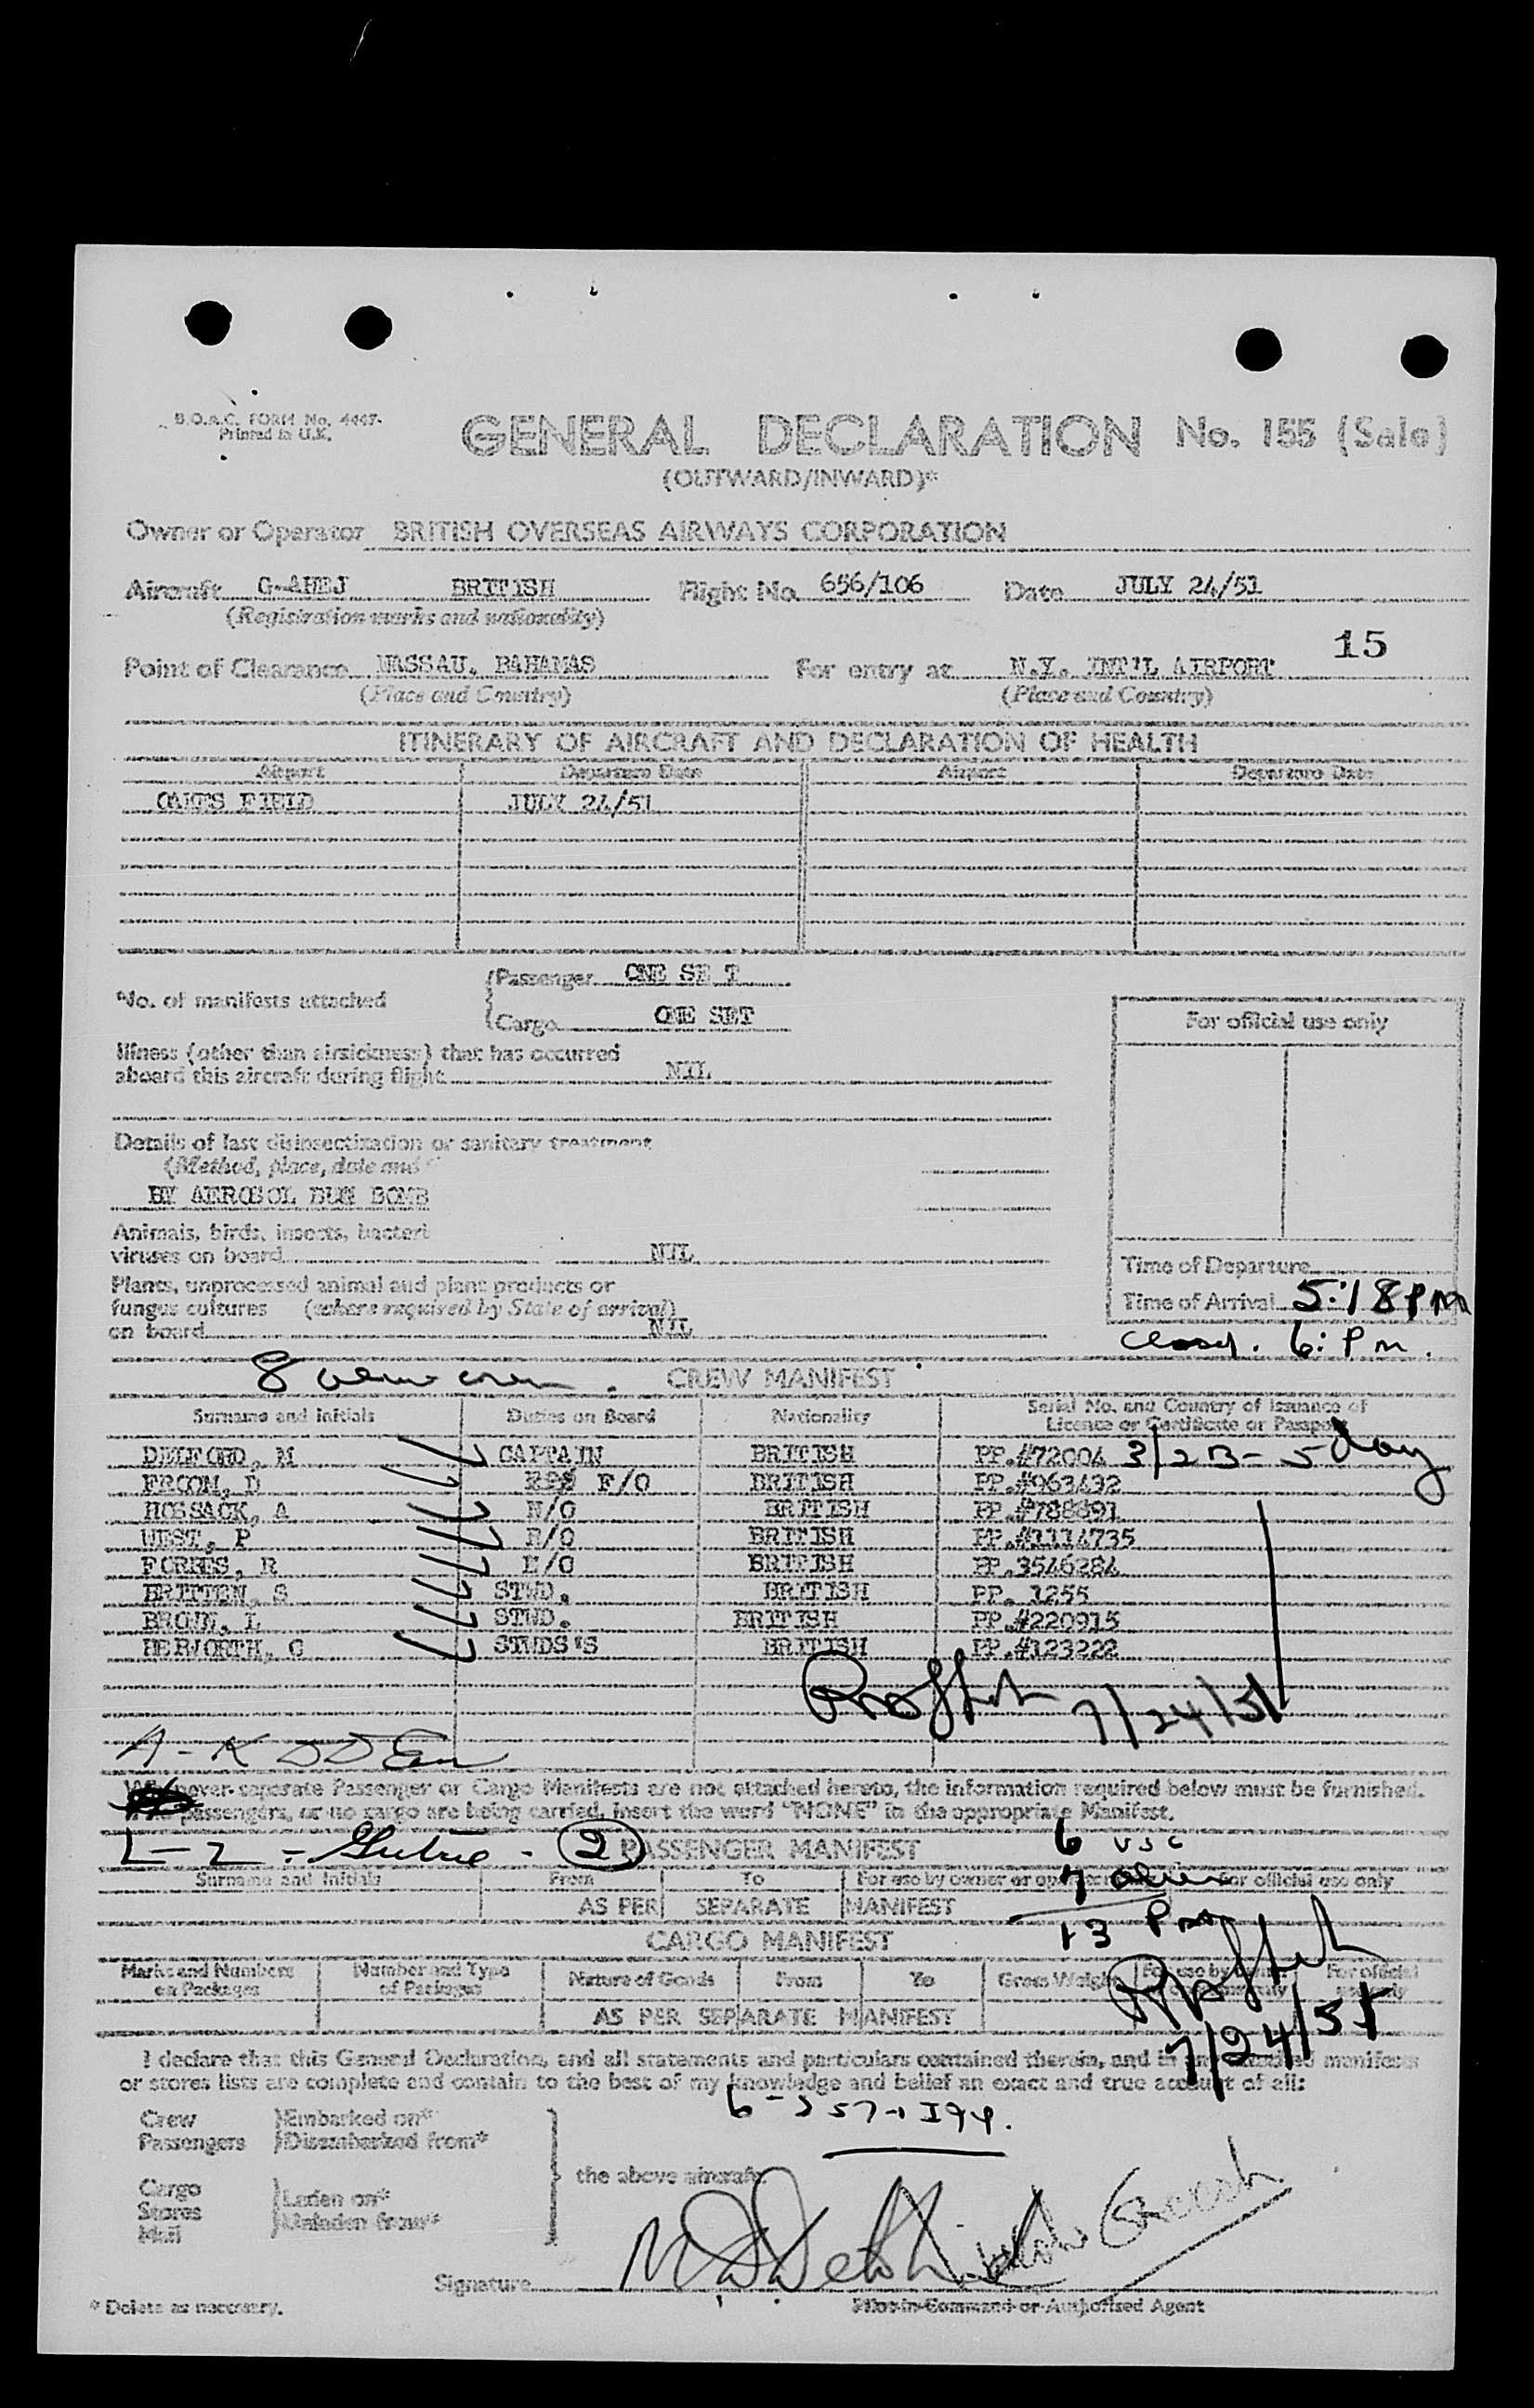 B.O.A.C. FORM No. 4447.
Printed in U.K.
GENERAL DECLARATION No. 155 (Sale)
(OUTWARD/INWARD)*
Owner or Operator BRITISH OVERSEAS AIRWAYS CORPORATION
Aircraft BRITISH Flight No. 656/106 Date JULY 24/51
(Registration marks and nationality)
15
Point of Clearance NASSAU, BAHAMAS For entry at N.Y. INT'L AIRPORT
(Place and Country) (Place and Country)
ITINERARY OF AIRCRAFT AND DECLARATION OF HEALTH
Airport Departure Date Airport Departure Date
OAKES FIELD JULY 24/51
No. of manifests attached
Passenger ONE SE T
Cargo ONE SET
For official use only
Illness (other than airsickness) that has occurred
aboard this aircraft during flight NIL
Details of last disinsectization or sanitary treatment
(Method, place, date and
BY AEROSOL BOMB
Animals, birds, insects, bacteri
viruses on board NIL
Plants, unprocessed animal and plant products or
fungus cultures (where required by State of arrival)
on board NIL
Time of Departure
Time of Arrival 5:18 PM
Closed. 6: Pm.
8 CREW MANIFEST
Surname and Initials Duties on Board Nationality Serial No. and Country of Issuance of
Licence or Certificate or Passport
M CAPTAIN BRITISH PP.#72004 3/2 B - 5 day
FROOM, D F/O BRITISH PP.#963432
HOSSACK, A N/O BRITISH
WEST, P R/O BRITISH PP.#1114735
FORBES, R E/O BRITISH PP.3546284
BRITTEN, S STWD. BRITISH PP. 1255
BROWN, L STWD. BRITISH PP.#220915
HEPWORTH, C STWDS'S BRITISH PP.#123222
7/24/51
Whenever separate Passenger or Cargo Manifests are not attached hereto, the information required below must be furnished.
passengers, or no cargo are being carried, insert the word "NONE" in the appropriate Manifest.
2 PASSENGER MANIFEST 6 USC
Surname and Initials From To For use by owner or operator only For official use only
7 alien
AS PER SEPARATE MANIFEST
13
CARGO MANIFEST
Marks and Numbers on Packages Number and Type of Packages Nature of Goods From To Gross Weight For use by owner For official use only
AS PER SEPARATE MANIFEST
7/24/51
I declare that this General Declaration, and all statements and particulars contained therein, and in any attached manifests
or stores lists are complete and contain to the best of my knowledge and belief an exact and true account of all:
Crew
Passengers
Embarked on*
Disembarked from*
Cargo
Stores
Mail
Laden on*
Unladen from*
the above aircraft.
Signature
Pilot-in-Command or Authorised Agent
* Delete as necessary.